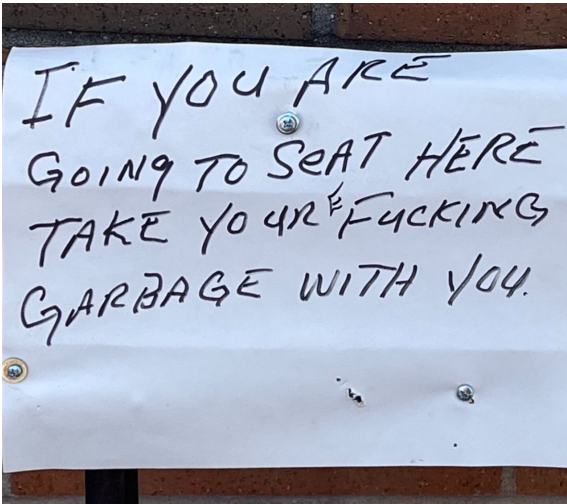 IF YOU ARE
GOING TO SEAT HERE
TAKE YOUR FUCKING
GARBAGE WITH YOU.